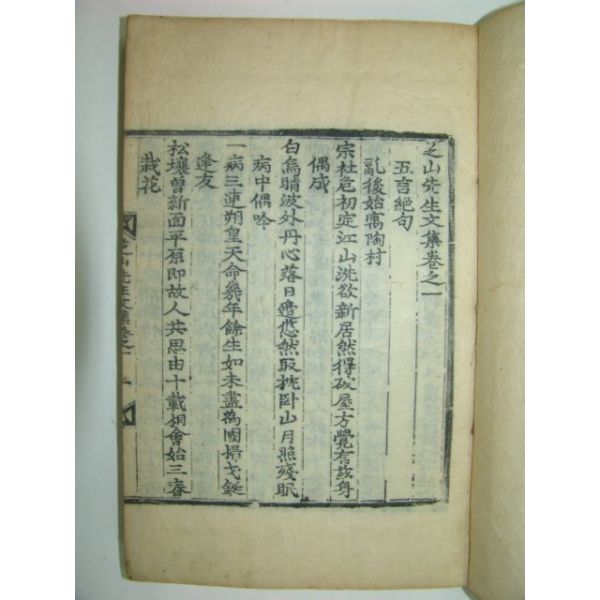 芝山先生文集卷之一
五言絶句
亂後始寓陶村
宗社危初定江山洗欲新居然得破屋方覺有故身
偶成
白鳥晴波外丹心落日邊悠然取枕卧山月照殘眠
病中偶吟
一病三連朔皇天命幾年餘生如未盡為國掃戈鋋
逢友
松壤曽新面平原即故人共思由十載相會始三春
栽花
芝山先生文集卷之一